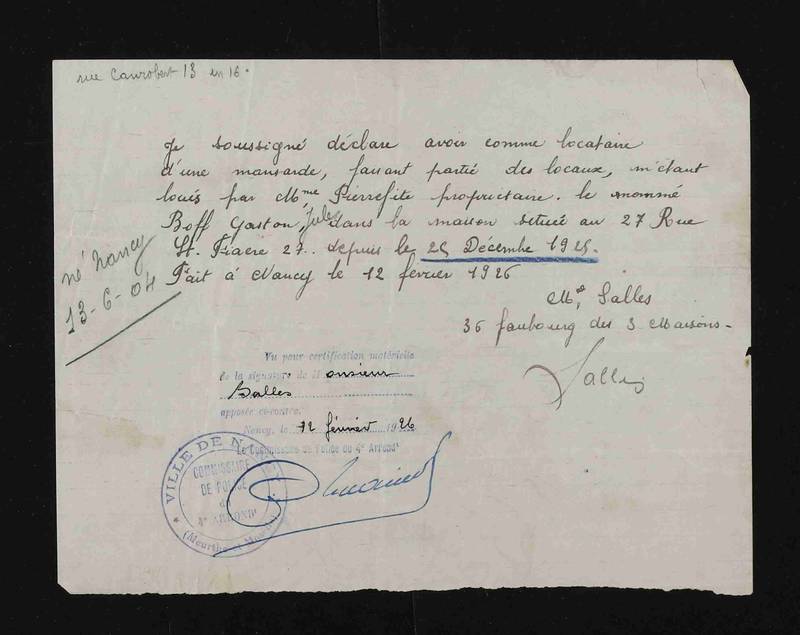 rue Canrobert 13 en 16.
Je soussigné déclare avoir comme locataire
d'une mansarde, faisant partie des locaux, m'étant
loués par Mme Pierrefite propriétaire. le nommé
Boff Gaston, Jules dans la maison située au 27 Rue
St. Fiacre 27.. depuis le 25 Décembre 1925.
Fait à Nancy le 12 février 1926
né Nancy
13-6-04
Mr Salles
36 faubourg des 3 Maisons-
Salles
Vu pour certification matérielle
de la signature de Monsieur
Salles
apposée ci-contre.
Nancy, le 12 février 1926
Le Commissaire de Police du 4e Arrondt
VILLE DE NANCY
COMMISSAIRE
DE POLICE
du
4e ARRONDt
(Meurthe et Moselle)